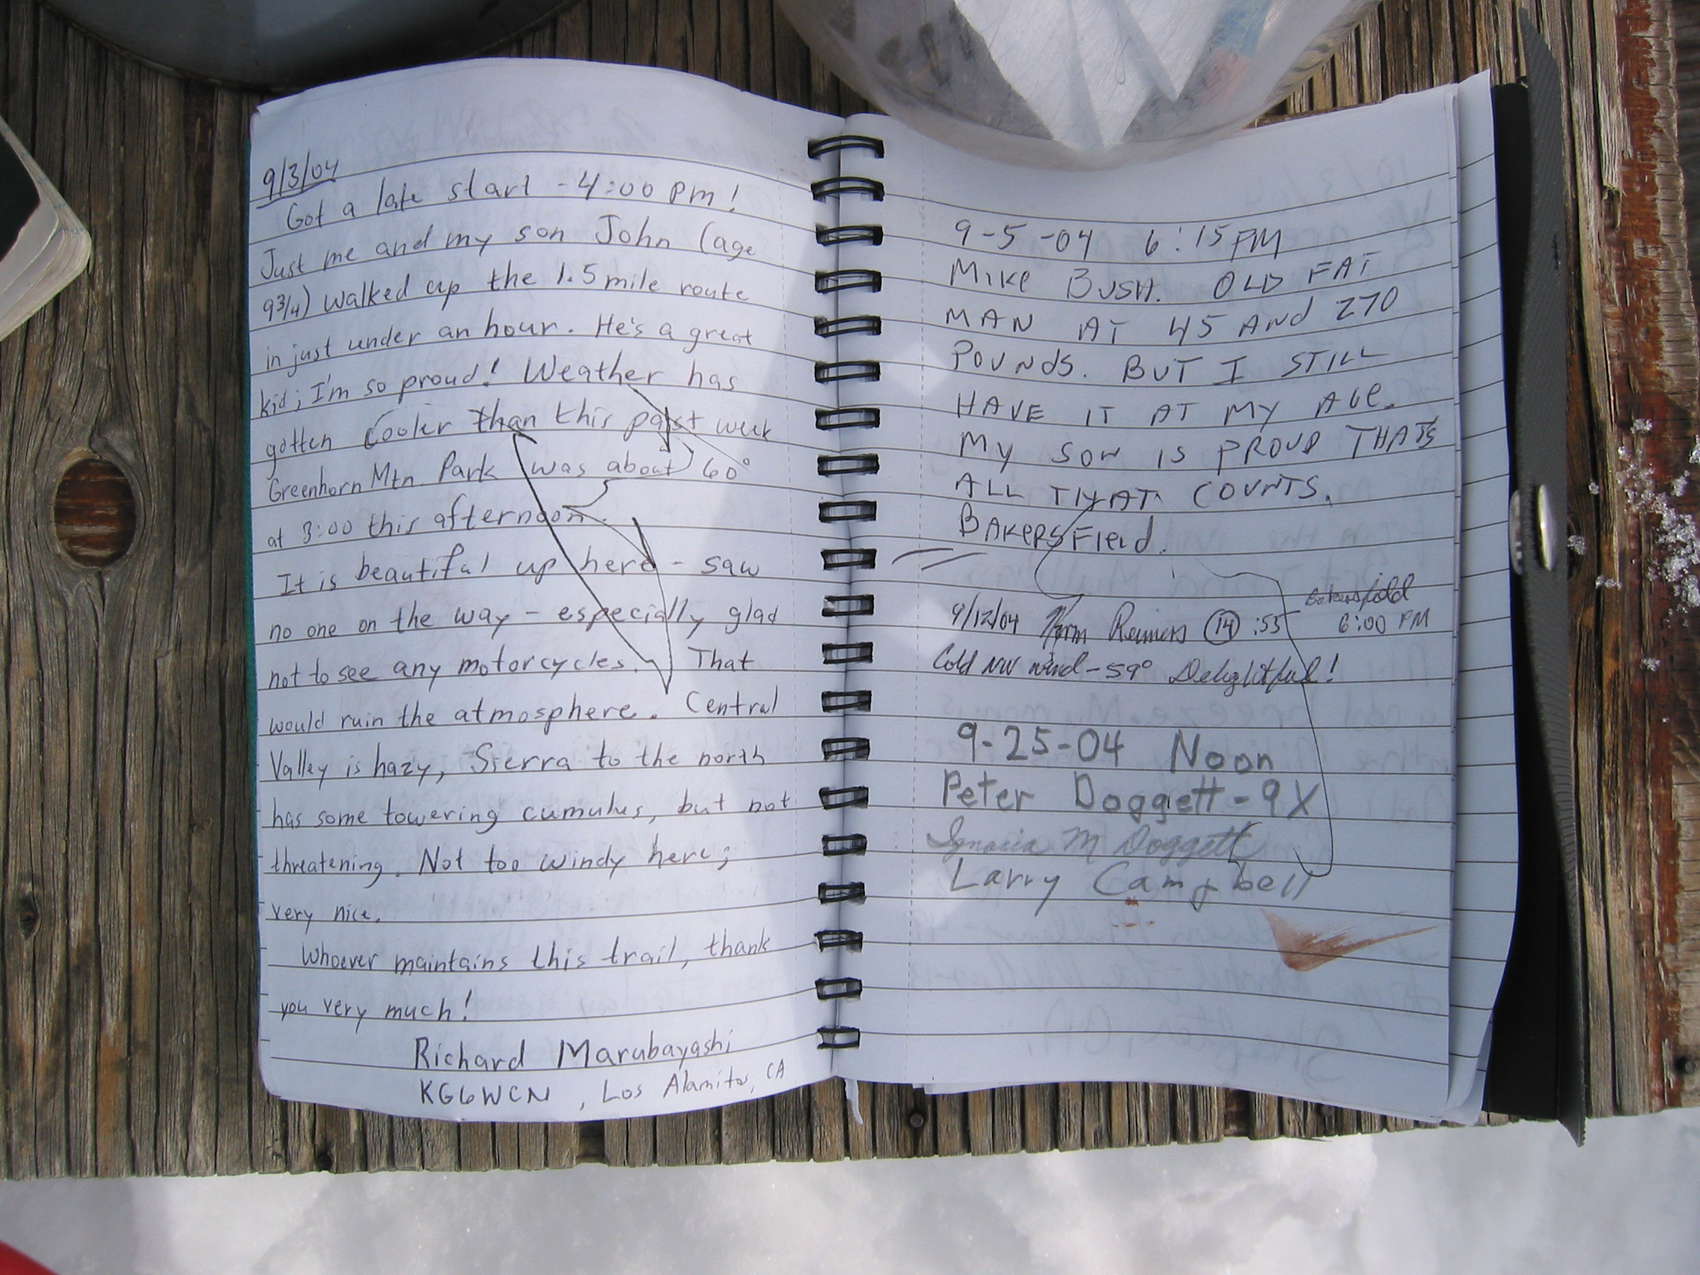 9/3/04
Got a late start - 4:00 pm!
Just me and my son John (age
9 3/4) walked up the 1.5 mile route
in just under an hour. He's a great
kid; I'm so proud! Weather has
gotten cooler than this past week
Greenhorn Mtn. Park was about 60°
at 3:00 this afternoon.
It is beautiful up here - saw
no one on the way - especially glad
not to see any motorcycles. That
would ruin the atmosphere. Central
Valley is hazy, Sierra to the north
has some towering cumulus, but not
threatening. Not too windy here;
very nice.
Whoever maintains this trail, thank
you very much!
Richard Marubayashi
KG6WCN, Los Alamitos, CA
9-5-04 6:15 PM
MIKE BUSH. OLD FAT
MAN AT 45 AND 270
POUNDS. BUT I STILL
HAVE IT AT MY AGE.
MY SON IS PROUD THATS
ALL THAT COUNTS.
BAKERSFIELD.
9/12/04 Reimers (14) :55 Bakersfield
6:00 PM
Cold NW wind - 59° Delightful!
9-25-04 Noon
Peter Doggett - 9X
M Doggett
Larry Campbell